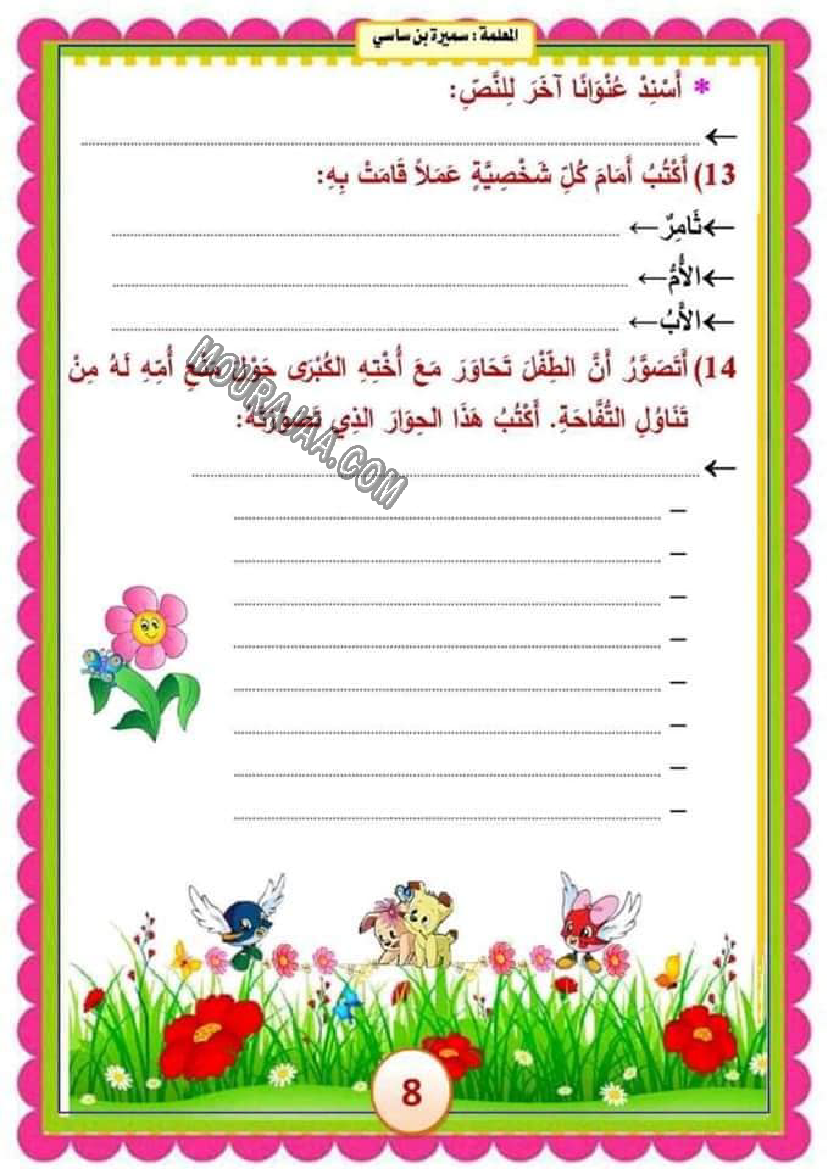 المعلمة : سميرة بن ساسي
* أَسْنِدْ عُنْوَانًا آخَرَ لِلنَّصِّ:
←
13) أَكْتُبُ أَمَامَ كُلِّ شَخْصِيَّةٍ عَمَلاً قَامَتْ بِهِ:
←ثَامِرٌ←
←الأُمُّ←
←الأَبُ←
14) أَتَصَوَّرُ أَنَّ الطِّفْلَ تَحَاوَرَ مَعَ أُخْتِهِ الكُبْرَى حَوْلَ مَنْعِ أُمِّهِ لَهُ مِنْ
تَنَاوُلِ التُّفَّاحَةِ. أَكْتُبُ هَذَا الحِوَارَ الذِي تَصَوَّرْتُهُ:
←
–
–
–
–
–
–
–
–
MOURAJAA.COM
8